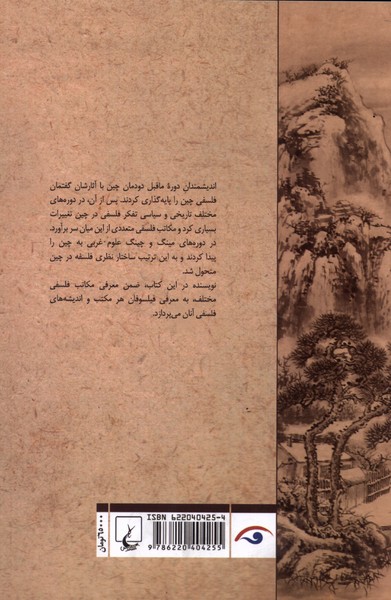 اندیشمندان دورهٔ ماقبل دودمان چین با آثارشان گفتمان
فلسفی چین را پایه‌گذاری کردند. پس از آن، در دوره‌های
مختلف تاریخی و سیاسی تفکر فلسفی در چین تغییرات
بسیاری کرد و مکاتب فلسفی متعددی از این میان سر برآورد.
در دوره‌های مینگ و چینگ علوم غربی به چین را
پیدا کردند و به این ترتیب ساختار نظری فلسفه در چین
متحول شد.
نویسنده در این کتاب، ضمن معرفی مکاتب فلسفی
مختلف، به معرفی فیلسوفان هر مکتب و اندیشه‌های
فلسفی آنان می‌پردازد.
ISBN 622040425-4
9 786220 404255
۶۵۰۰۰ تومان
ققنوس